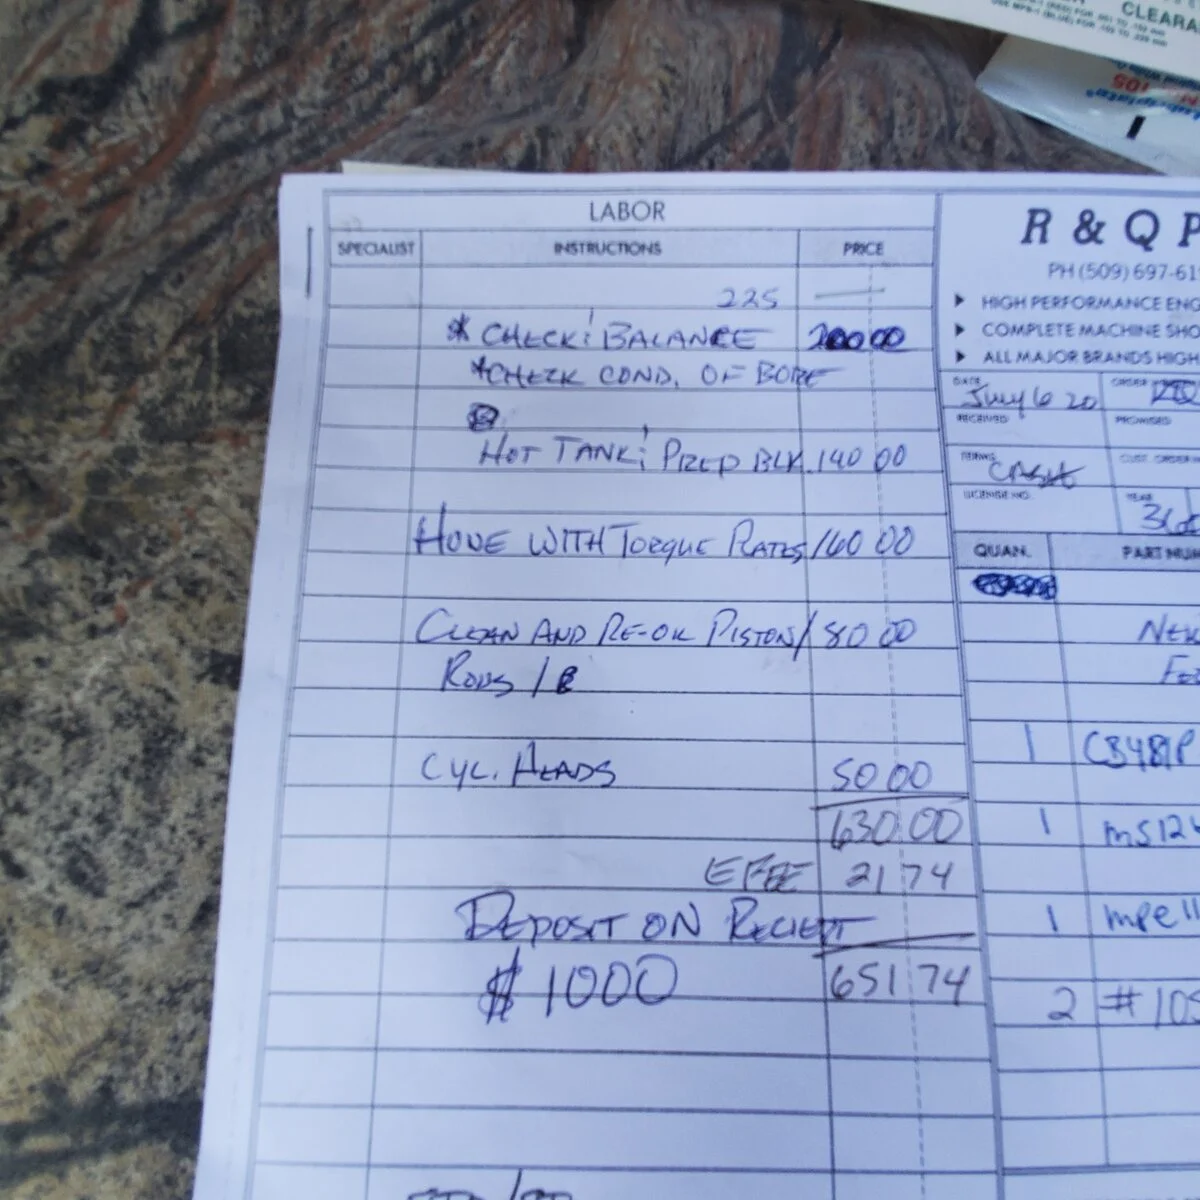 CLEARA
LABOR
SPECIALIST INSTRUCTIONS PRICE
225
* CHECK & BALANCE 200 00
*CHECK COND. OF BORE
HOT TANK & PREP BLK. 140 00
HONE WITH TORQUE PLATES 160 00
CLEAN AND RE-OIL PISTON/ 80 00
RODS / 8
CYL. HEADS 50 00
630.00
EFEE 21 74
DEPOSIT ON RECIEPT
$ 1000 651 74
R & Q P
PH (509) 697-61
HIGH PERFORMANCE ENG
COMPLETE MACHINE SHO
ALL MAJOR BRANDS HIGH
DATE July 6 20 ORDER
RECEIVED PROMISED
TERMS CASH CUST. ORDER
LICENSE NO. YEAR
QUAN. PART NUM
NEW
1 CB481P
1 MS124
1 mpe11
2 #105